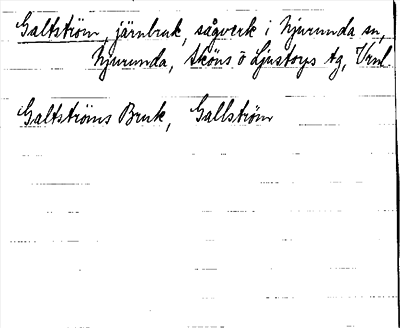 Galtström, järnbruk, sågverk i Njurunda sn,
Njurunda, Sköns o Ljustorps tg, Vrnl.
Galtströms Bruk, Gallström